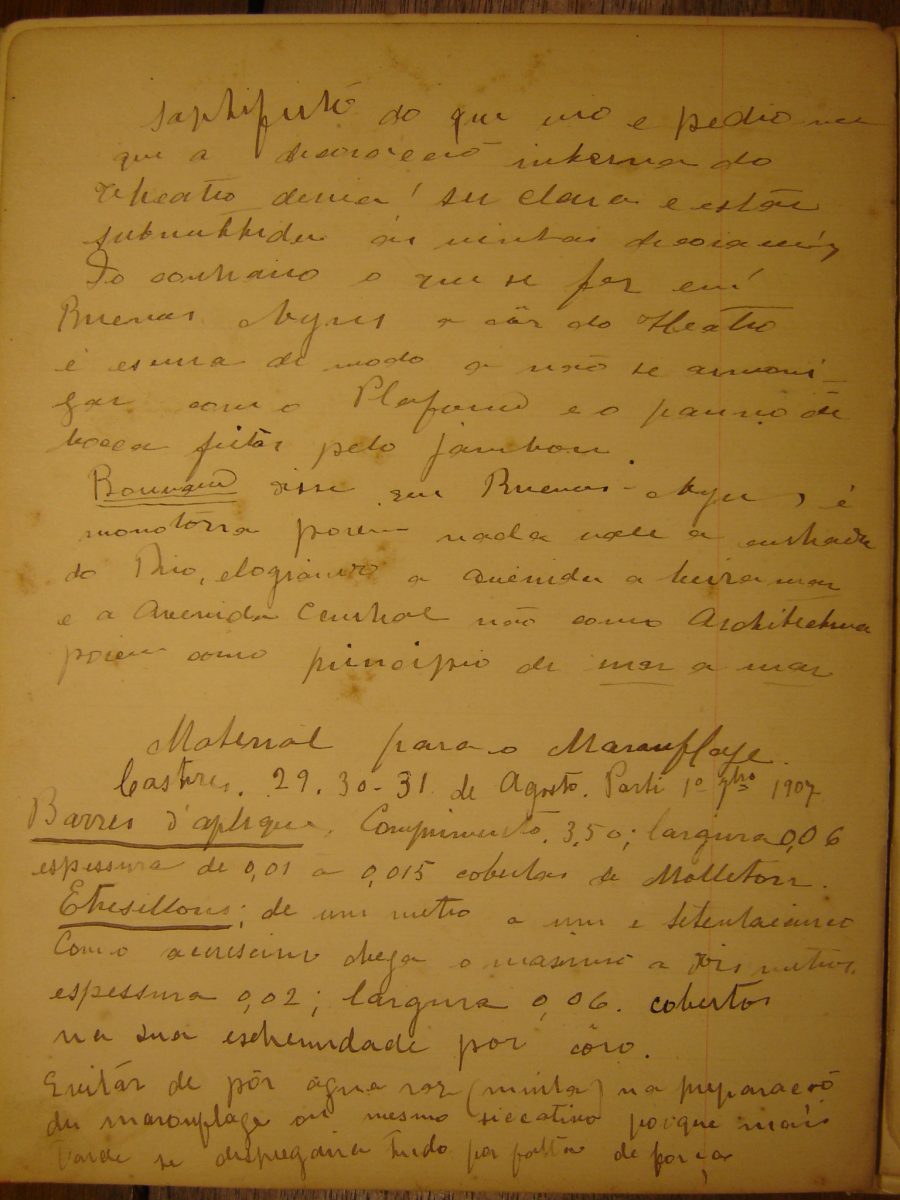 do que viu e pedio me
que a decoracção interna do
Theatro devia ser clara e estár
submettida ás minhas decorações
Ao contrario o que se fez em
Buenas Ayres a côr do Theatro
é escura de modo a não se armoni-
zar com o Plafond e o panno de
bocca feitos pelo Jambon.
Bouvard disse que Buenos-Ayres, é
monotona porem nada vale a entrada
do Rio, elogiando a avenida a beira mar
e a Avenida Central não como Architectura
porem como principio de mar a mar
Material para o Marouflage.
Castres. 29. 30-31 de Agosto. Parti 1º 7bro 1907
Barres d'aplique. Comprimento. 3,50; largura 0,06
espessura de 0,01 a 0,015 cobertas de Molleton.
Etresillons; de um metro a um e setentacinco
Como accrescimo chega o maximo a dois metros,
espessura 0,02; largura 0,06. cobertos
na sua extremidade por côro.
Evitár de pôr agua raz (muita) na preparacção
du marouflage ou mesmo siccativo porque mais
tarde se despegaria tudo por falta de força